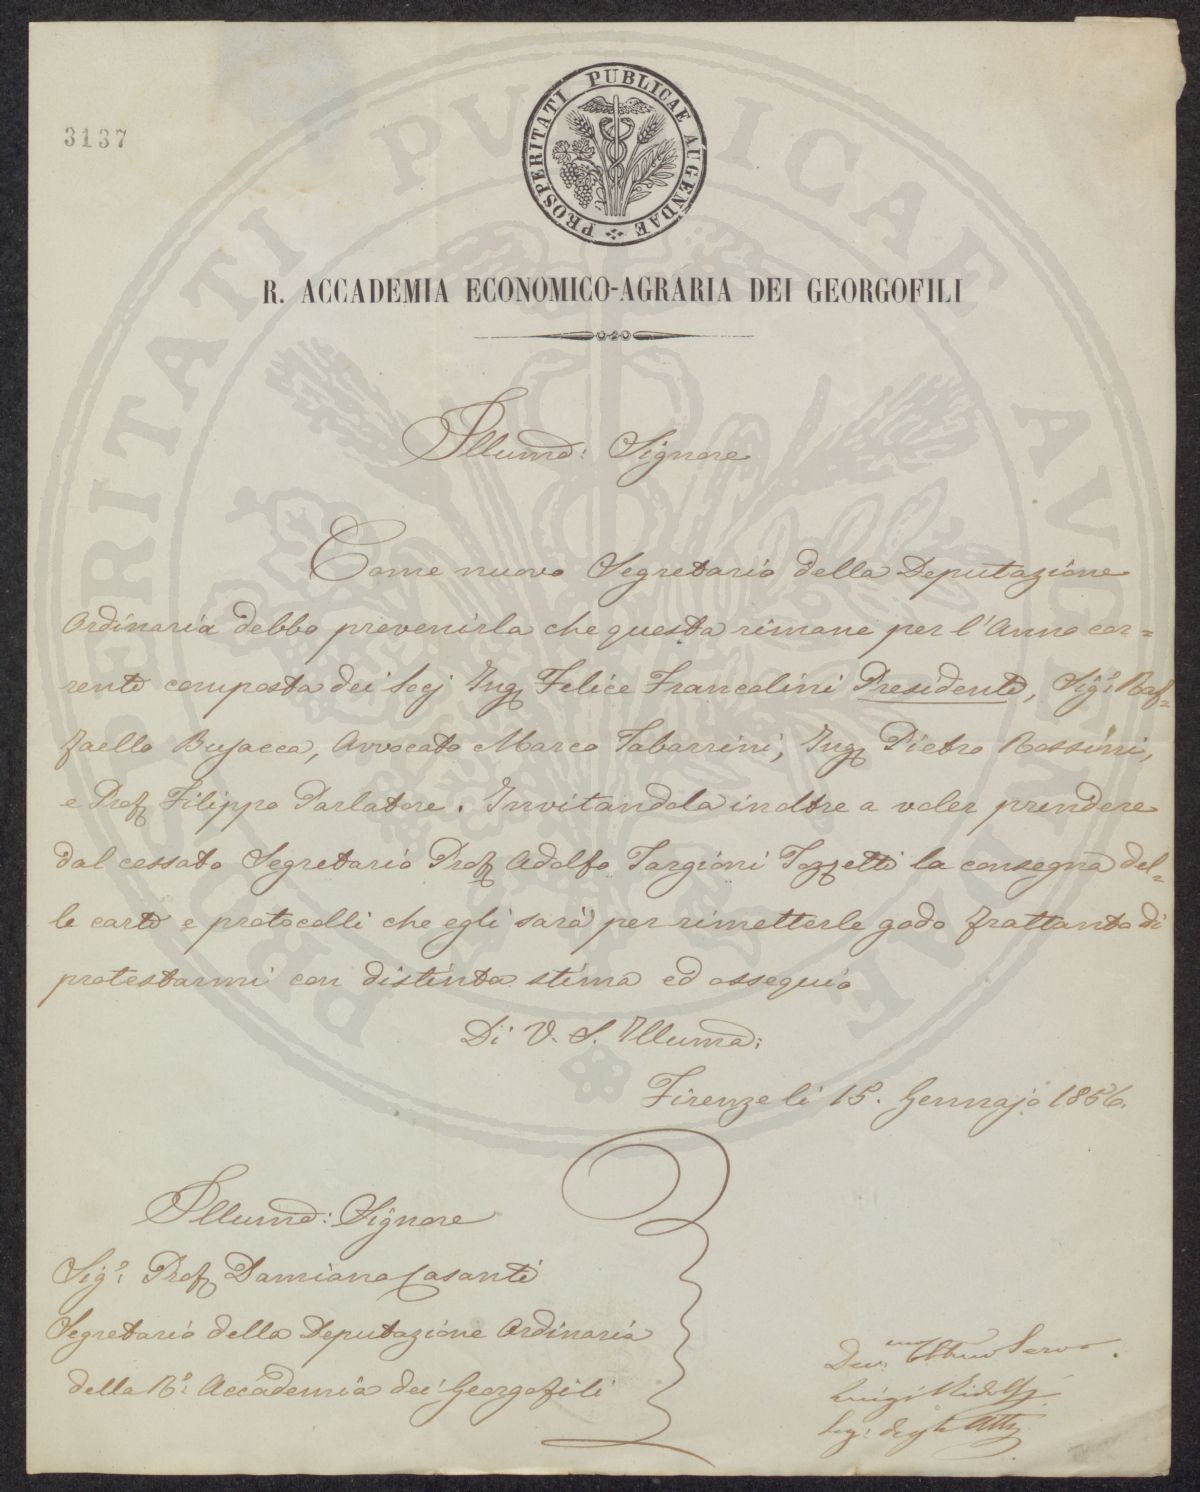 3137
PROSPERITATI PUBLICAE AUGENDAE
R. ACCADEMIA ECONOMICO-AGRARIA DEI GEORGOFILI
Illumo: Signore
Come nuovo Segretario della Deputazione
Ordinaria debbo prevenirla che questa rimane per l'Anno cor=
rente composta dei Socj Ing Felice Francolini Presidente, Sigr: Raf=
faello Busacca, Avvocato Marco Tabarrini, Ing Pietro Rossini,
e Prof Filippo Parlatore. Invitandola inoltre a voler prendere
dal cessato Segretario Prof Adolfo Targioni Tozzetti la consegna del=
le carte e protocolli che egli sarà per rimetterle godo frattanto di
protestarmi con distinta stima ed ossequio
Di V. S. Illuma:
Firenze li 15. Gennajo 1856.
Illumo: Signore
Sigr: Prof Damiano Casanti
Segretario della Deputazione Ordinaria
della Ra: Accademia dei Georgofili
Devmo: Obbmo Servo.
Luigi Ridolfi
Seg: degli Atti
PROSPERITATI PUBLICAE AUGENDAE